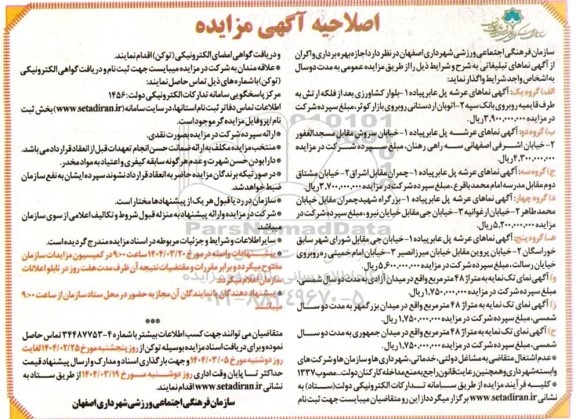 اصلاحیه آگهی مزایده
سازمان فرهنگی اجتماعی ورزشی شهرداری اصفهان در نظر دارد اجازه بهره برداری و اکران
از آگهی نماهای تبلیغاتی به شرح و شرایط ذیل را از طریق مزایده عمومی به مدت دو سال
به اشخاص واجد شرایط واگذار نماید:
الف) گروه یک: آگهی نماهای عرشه پل عابر پیاده ۱-بلوار کشاورزی بعد از فلکه ارتش به
طرف قائمیه روبروی بانک سپه ۲-اتوبان اردستانی روبروی بازار کوثر، مبلغ سپرده شرکت
در مزایده ۳.۹۰۰.۰۰۰.۰۰۰ ریال.
ب) گروه دو: آگهی نماهای عرشه پل عابر پیاده ۱-خیابان سروش مقابل مسجدالغفور
۲-خیابان اشرفی اصفهانی سه راهی رهنان، مبلغ سپرده شرکت در مزایده
۴.۳۰۰.۰۰۰.۰۰۰ ریال.
ج) گروه سه: آگهی نماهای عرشه پل عابر پیاده ۱-چمران مقابل اشراق ۲-خیابان مشتاق
دوم مقابل مدرسه امام محمد باقر ع، مبلغ سپرده شرکت در مزایده ۳.۷۰۰.۰۰۰.۰۰۰ ریال.
د) گروه چهار: آگهی نماهای عرشه پل عابر پیاده ۱-بزرگراه شهید چمران مقابل خیابان
محمد طاهر ۲-خیابان ارغوانیه ۳-خیابان جی مقابل خیابان نیرو، مبلغ سپرده شرکت در
مزایده ۵.۲۰۰.۰۰۰.۰۰۰ ریال.
هـ) گروه پنج: آگهی نماهای عرشه پل عابر پیاده ۱-خیابان جی مقابل شورای شهر سابق
خوراسگان ۲-خیابان پروین مقابل خیابان میرزا نصیر ۳-خیابان امام خمینی ره روبروی
خیابان رسالت، مبلغ سپرده شرکت در مزایده ۵.۶۰۰.۰۰۰.۰۰۰ ریال.
ی) آگهی نمای تک نمایه به متراژ ۴۸ مترمربع واقع در میدان آزادی به مدت دو سال شمسی،
مبلغ سپرده شرکت در مزایده ۱.۷۵۰.۰۰۰.۰۰۰ ریال.
ز) آگهی نمای تک نمایه به متراژ ۴۸ مترمربع واقع در میدان بزرگمهر به مدت دو سال
شمسی، مبلغ سپرده شرکت در مزایده ۱.۷۵۰.۰۰۰.۰۰۰ ریال.
ح) آگهی نمای تک نمایه به متراژ ۴۸ مترمربع واقع در میدان جمهوری به مدت دو سال
شمسی، مبلغ سپرده شرکت در مزایده ۱.۷۵۰.۰۰۰.۰۰۰ ریال.
* عدم اشتغال متقاضی به مشاغل دولتی، خدماتی، شهرداری ها و سازمان ها و شرکت های
وابسته شهرداری و همچنین رعایت قانون راجع به منع مداخله کارکنان دولت، مصوب ۱۳۳۷
* کلیه فرآیند مزایده از طریق سامانه تدارکات الکترونیکی دولت (ستاد) به
نشانی www.setadiran.ir برگزار میگردد از این رو متقاضیان میبایست جهت ثبت نام
و دریافت گواهی امضای الکترونیکی (توکن) اقدام نمایند.
* علاقه مندان به شرکت در مزایده میبایست جهت ثبت نام و دریافت گواهی الکترونیکی
(توکن) با شماره های ذیل تماس حاصل نمایند:
مرکز پاسخگویی سامانه تدارکات الکترونیکی دولت: ۱۴۵۶
اطلاعات تماس دفاتر ثبت نام استانها، در سایت سامانه (www.setadiran.ir) بخش ثبت
نام / پروفایل مزایده گر موجود است.
* ارائه سپرده شرکت در مزایده بصورت نقدی.
* منتخب مزایده مکلف به ارائه ضمانت حسن انجام تعهدات قبل از انعقاد قرارداد می باشد.
* دارا بودن حسن شهرت و عدم هرگونه سابقه کیفری و اعتیاد به مواد مخدر.
* در صورتیکه برندگان مزایده حاضر به انعقاد قرارداد نشوند سپرده ایشان به نفع سازمان
ضبط خواهد شد.
* سازمان در رد یا قبول هر یک از پیشنهادها مختار است.
* شرکت در مزایده و ارائه پیشنهاد به منزله قبول شروط و تکالیف اعلامی از سوی سازمان
میباشد
* سایر اطلاعات و شرایط و جزئیات مربوطه در اسناد مزایده مندرج گردیده است.
* پیشنهادات واصله در مورخ ۱۴۰۴/۰۳/۲۰ ساعت ۹:۰۰ در کمیسیون مزایدات سازمان
مفتوح میگردد و برابر مقررات و مقتضیات نتیجه آن ظرف مدت هفت روز در تابلو اعلانات
سازمان اعلام میگردد.
* پیشنهاد دهندگان یا نمایندگان آن مجاز به حضور در محل ستاد سازمان از ساعت ۹:۰۰
***
متقاضیان می توانند جهت کسب اطلاعات بیشتر با شماره ۴-۳۴۴۸۷۷۵۳ تماس حاصل
نموده و برای دریافت اسناد مزایده بوسیله توکن از روز پنجشنبه مورخ ۱۴۰۴/۰۲/۲۵ لغایت
روز دوشنبه مورخ ۱۴۰۴/۰۳/۰۵ و جهت بارگذاری اسناد و مدارک و ارسال پیشنهاد قیمت
حداکثر تا پایان وقت اداری روز دوشنبه مورخ ۱۴۰۴/۰۳/۱۹ از طریق ستاد به
نشانی www.setadiran.ir اقدام نمایند.
سازمان فرهنگی اجتماعی ورزشی شهرداری اصفهان